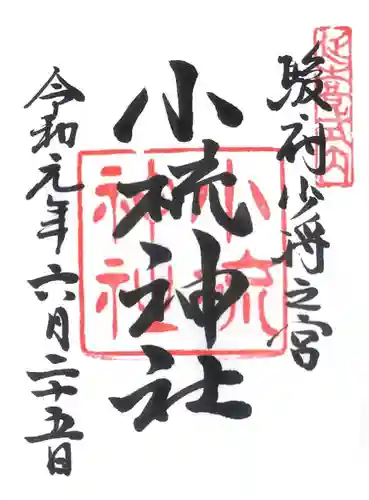 延喜式内
駿府少将之宮
小梳神社
小梳神社
令和元年六月二十五日